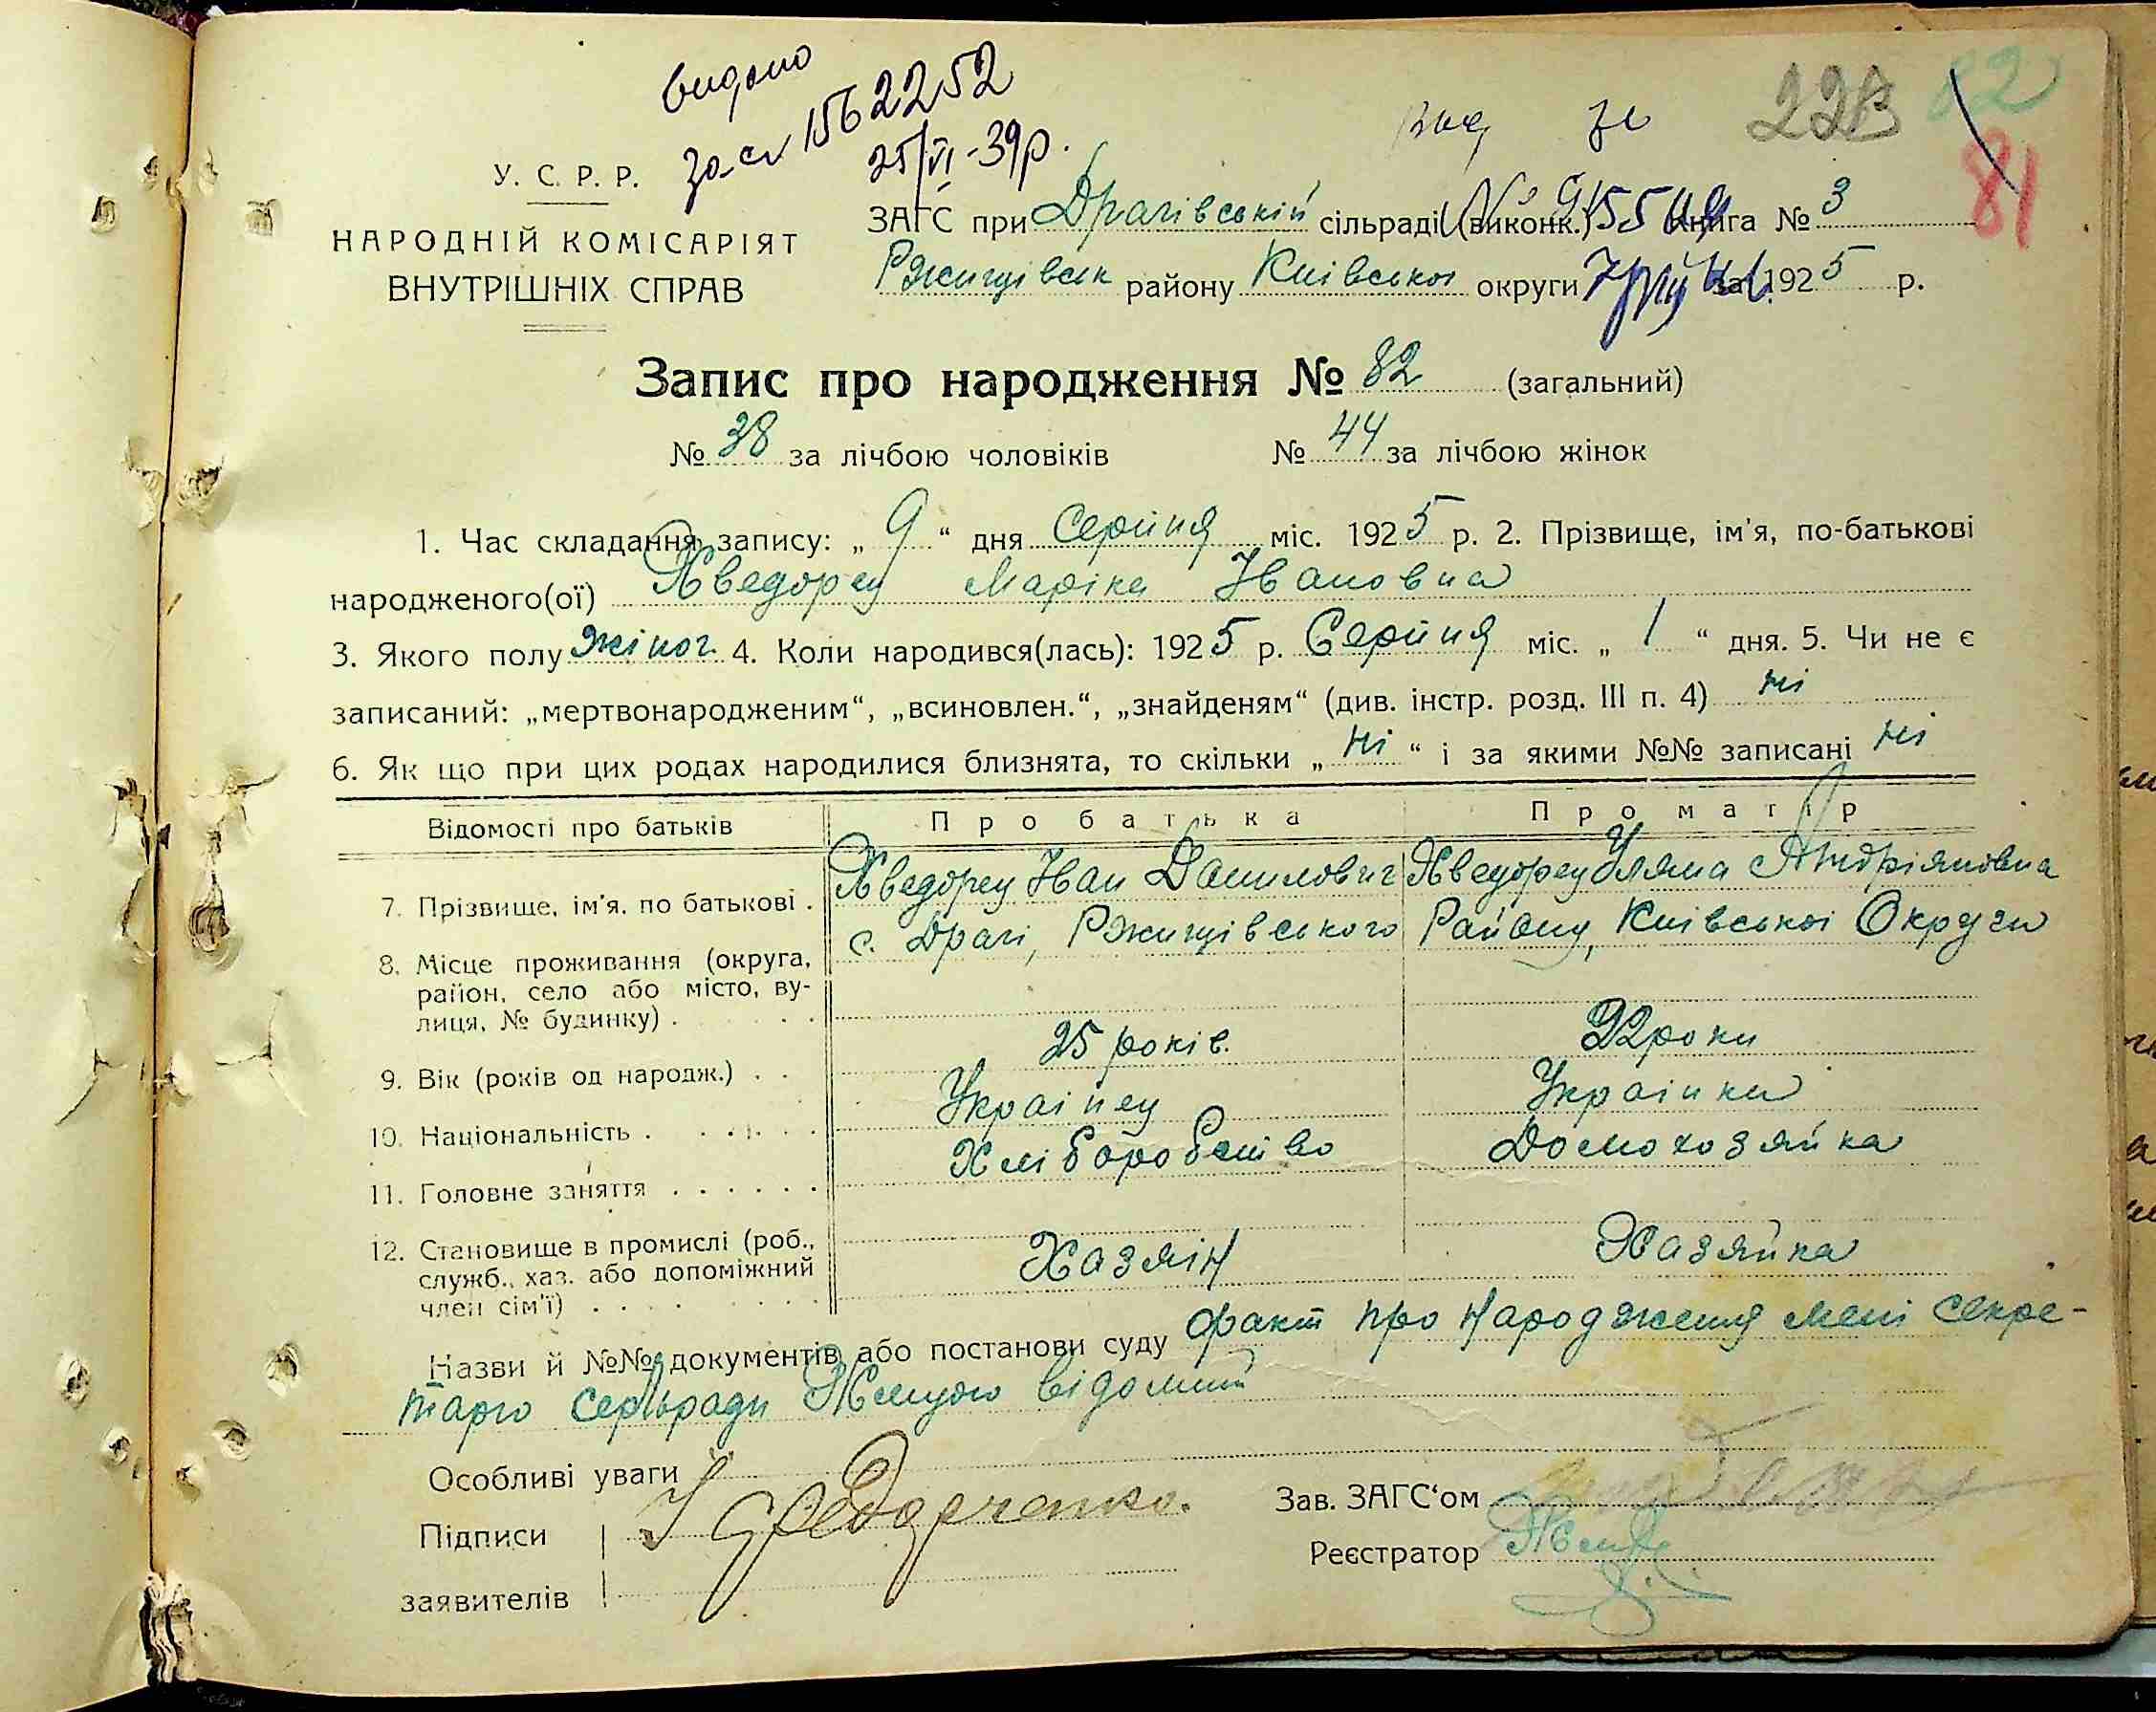 видано
за № 1562252
25/VI-39р.
22В 82
81
У. С. Р. Р.
НАРОДНІЙ КОМІСАРІЯТ
ВНУТРІШНІХ СПРАВ
ЗАГС при Драчівській сільраді (виконк.) Книга № 3
Ржищівськ району Київської округи за 1925 р.
Запис про народження № 82 (загальний)
№ 38 за лічбою чоловіків № 44 за лічбою жінок
1. Час складання запису: „ 9 “ дня Серпня міс. 1925 р. 2. Прізвище, ім'я, по-батькові
народженого(ої) Хведорец Марія Івановна
3. Якого полу жіноч. 4. Коли народився(лась): 1925 р. Серпня міс. „ 1 “ дня. 5. Чи не є
записаний: „мертвонародженим“, „всиновлен.“, „знайденям“ (див. інстр. розд. III п. 4) ні
6. Як що при цих родах народилися близнята, то скільки „ ні “ і за якими №№ записані ні
Відомості про батьків Про батька Про матір
7. Прізвище, ім'я, по батькові . Хведорец Іван Данилович Хведорец Уляна Андріяновна
8. Місце проживання (округа, с. Драчі, Ржищівського Району, Київської Округи
район, село або місто, ву-
лиця, № будинку) .
9. Вік (років од народж.) . . 25 років. 22 роки
10. Національність . Украінец Украінка
11. Головне заняття . . . . . . Хліборобство Домохозяйка
12. Становище в промислі (роб.,
служб., хаз. або допоміжний Хазяін Хазяйка
член сім'ї) . . . .
Назви й №№ документів або постанови суду Факт про народження мені секре-
тарю сельради відомий
Особливі уваги
Підписи І Федорченко.
заявителів
Зав. ЗАГС‘ом
Реєстратор